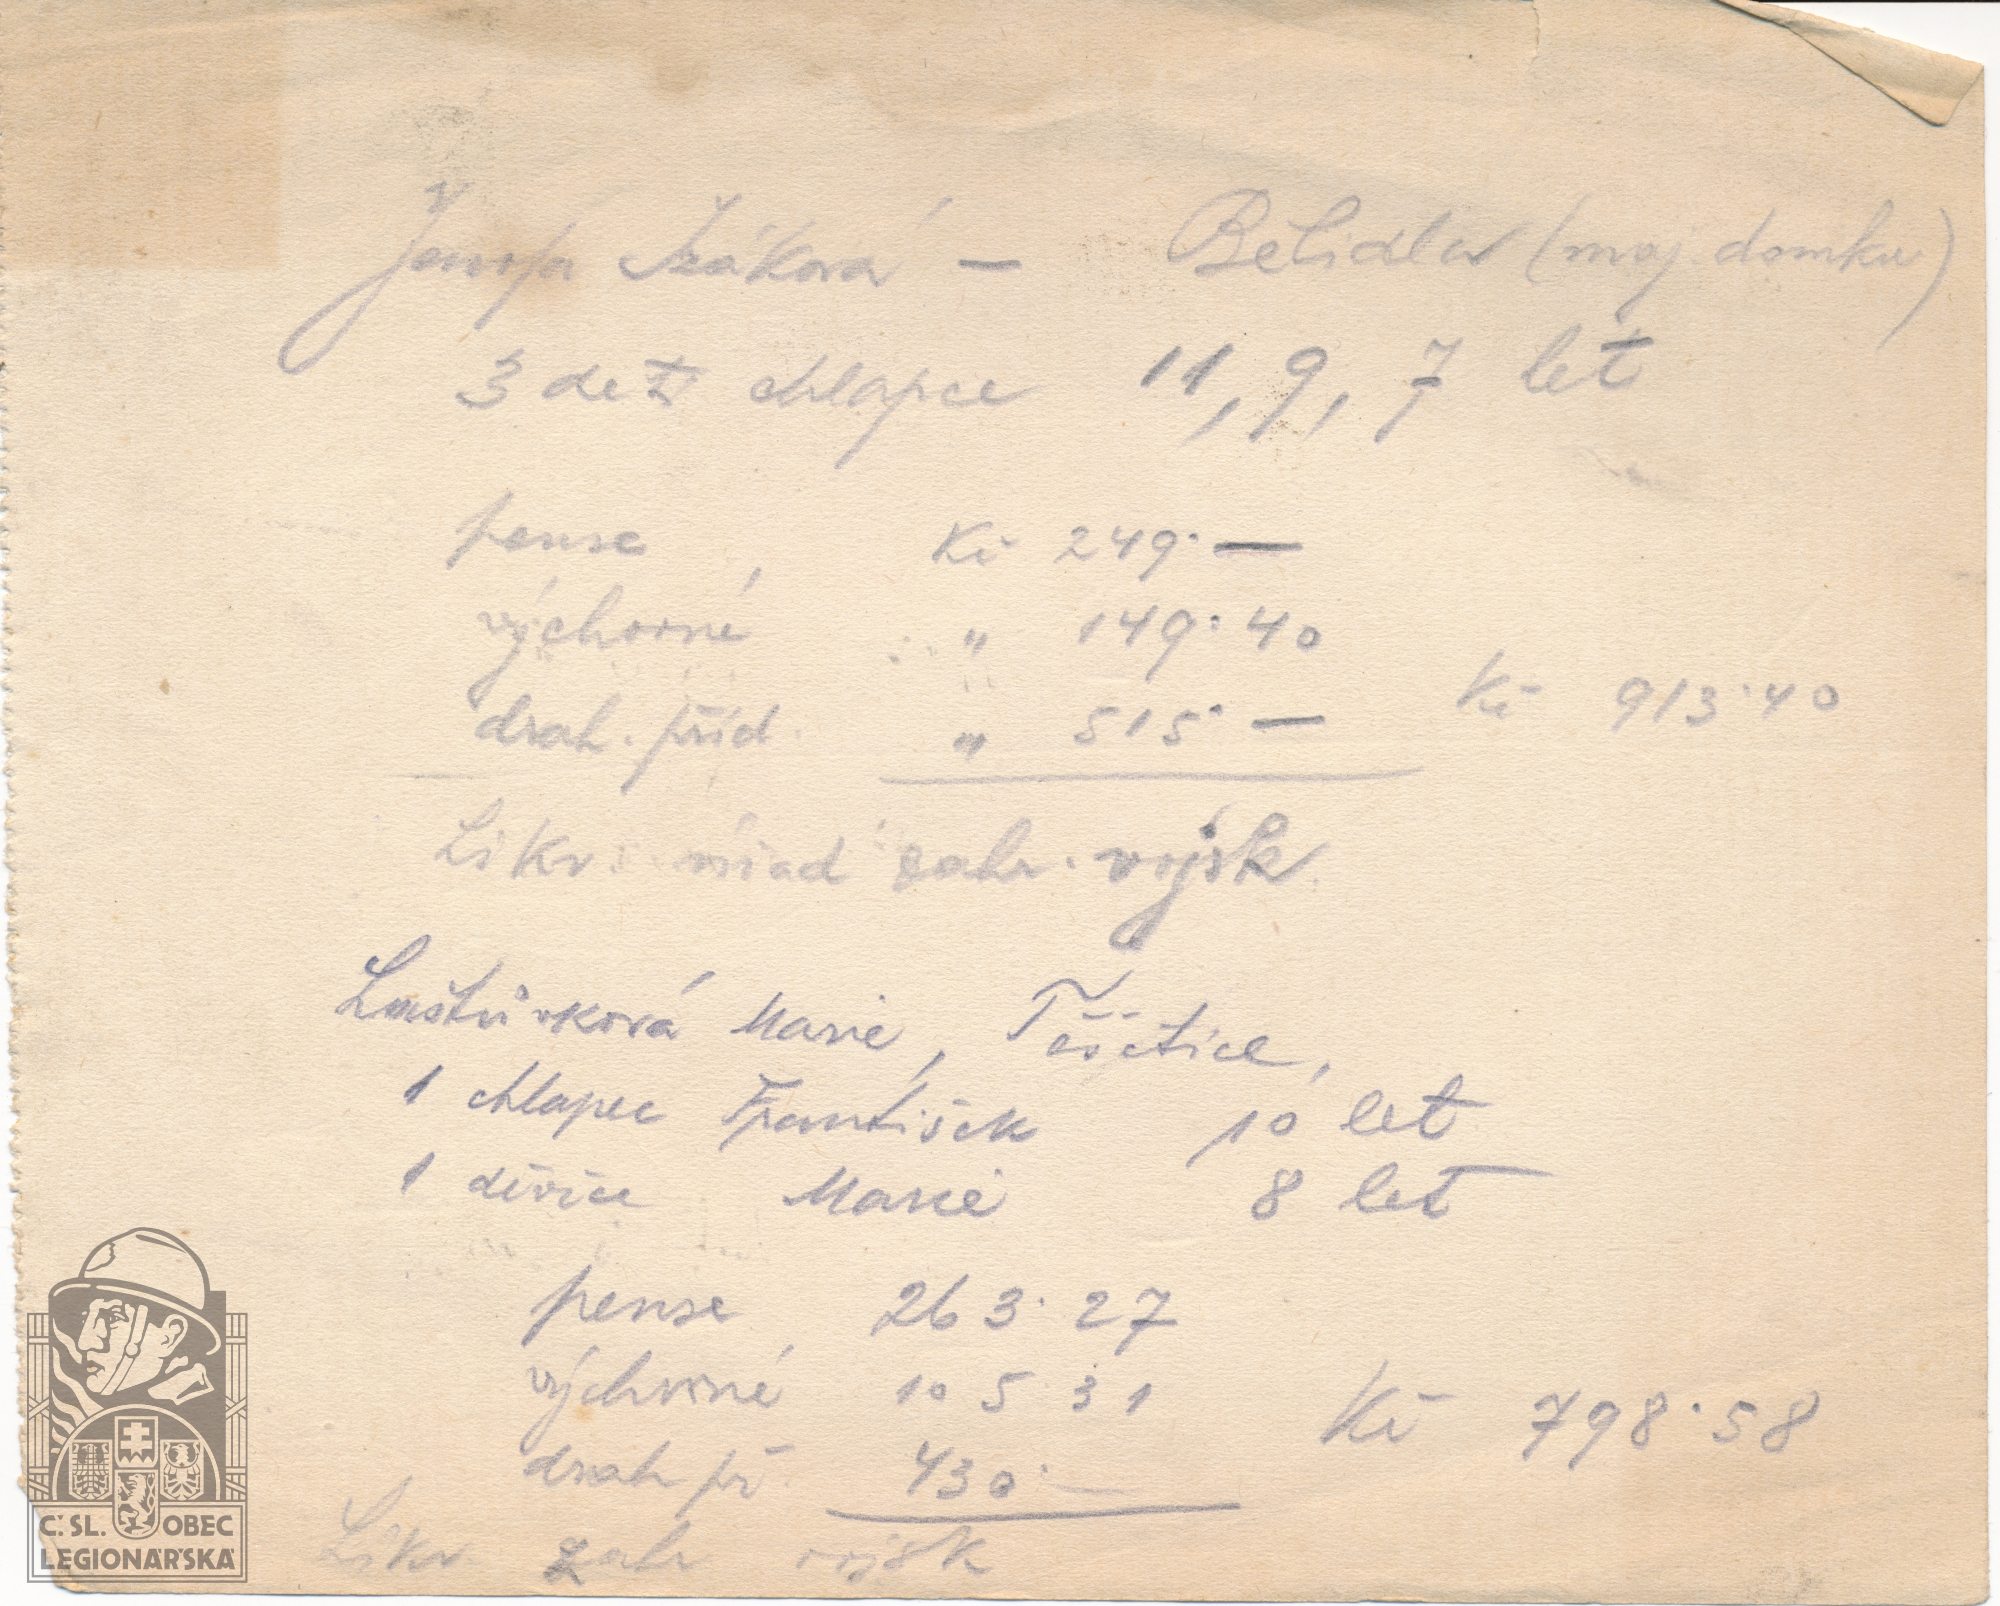 Josefa Izáková — Bělidla (maj. domku)
3 děti chlapce 11, 9, 7 let
pense Kč 249·—
výchovné „ 149·40
drah. příd. „ 515·— Kč 913·40
Likv. úřad zahr. vojsk.
Laštůvková Marie, Těšetice,
1 chlapec František 10 let
1 děvče Marie 8 let
pense 263·27
výchovné 105 31
drah př. 430·— Kč 798·58
Likv. zahr vojsk
Č.SL. OBEC
LEGIONÁŘSKÁ